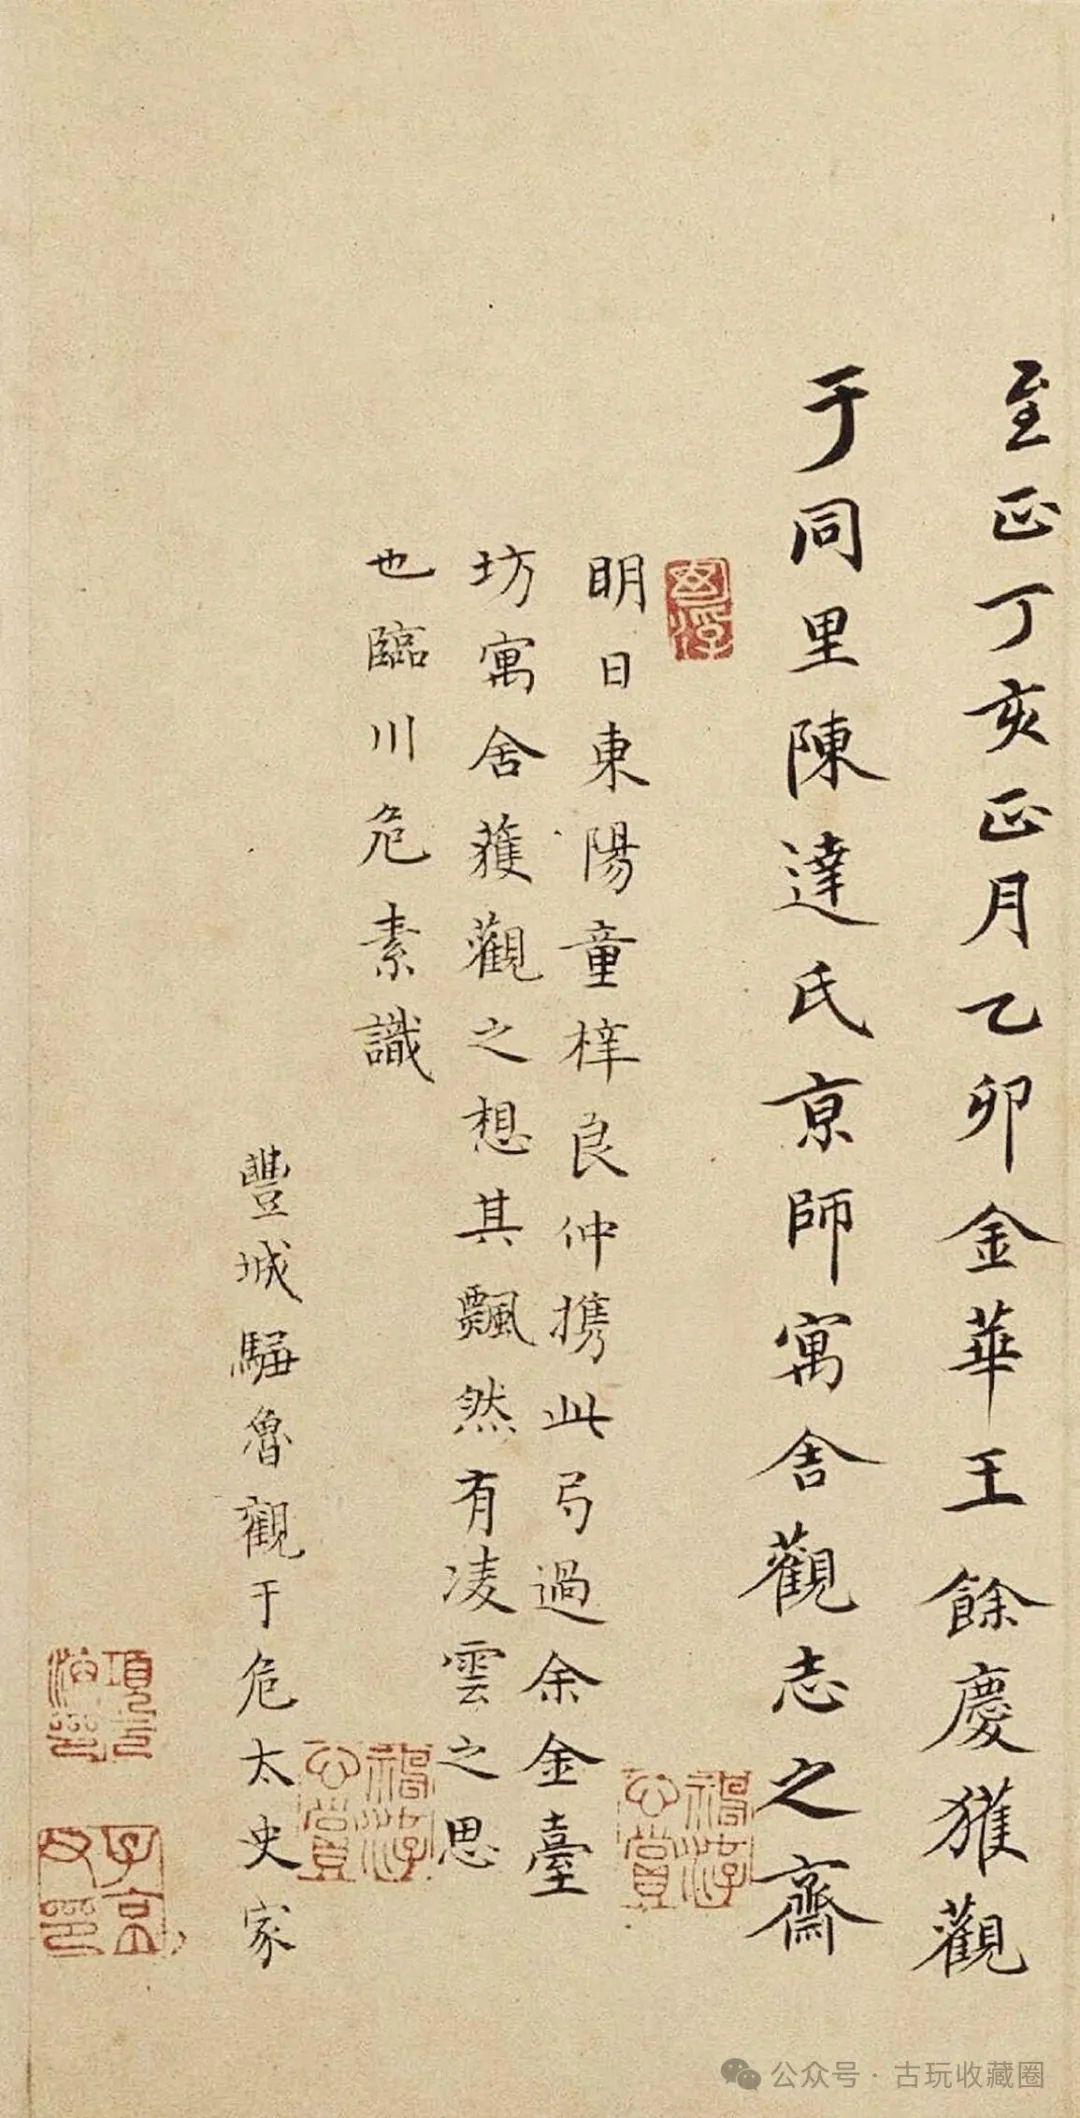 至正丁亥正月乙卯金華王餘慶獲觀
于同里陳達氏京師寓舍觀志之齋
明日東陽童梓良仲携此弓過余金臺
坊寓舍獲觀之想其飄然有凌雲之思
也臨川危素識
豐城騶魯觀于危太史家
項元
汴印
子京
父印
公众号 · 古玩收藏圈